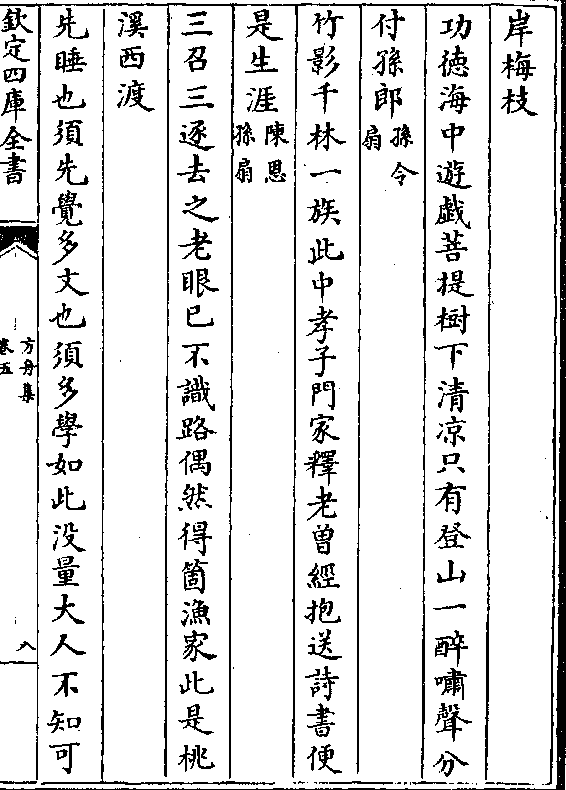 岸梅枝
功徳海中遊戯菩提樹下清凉只有登山一醉嘯聲分
付孫郎孫令扇
竹影千林一族此中孝子門家釋老曽經抱送詩書便
是生涯陳恩孫扇
三召三逐去之老眼已不識路偶然得箇漁家此是桃
溪西渡
先睡也須先覺多文也須多學如此没量大人不知可
欽定四庫全書
方舟集
卷五
八